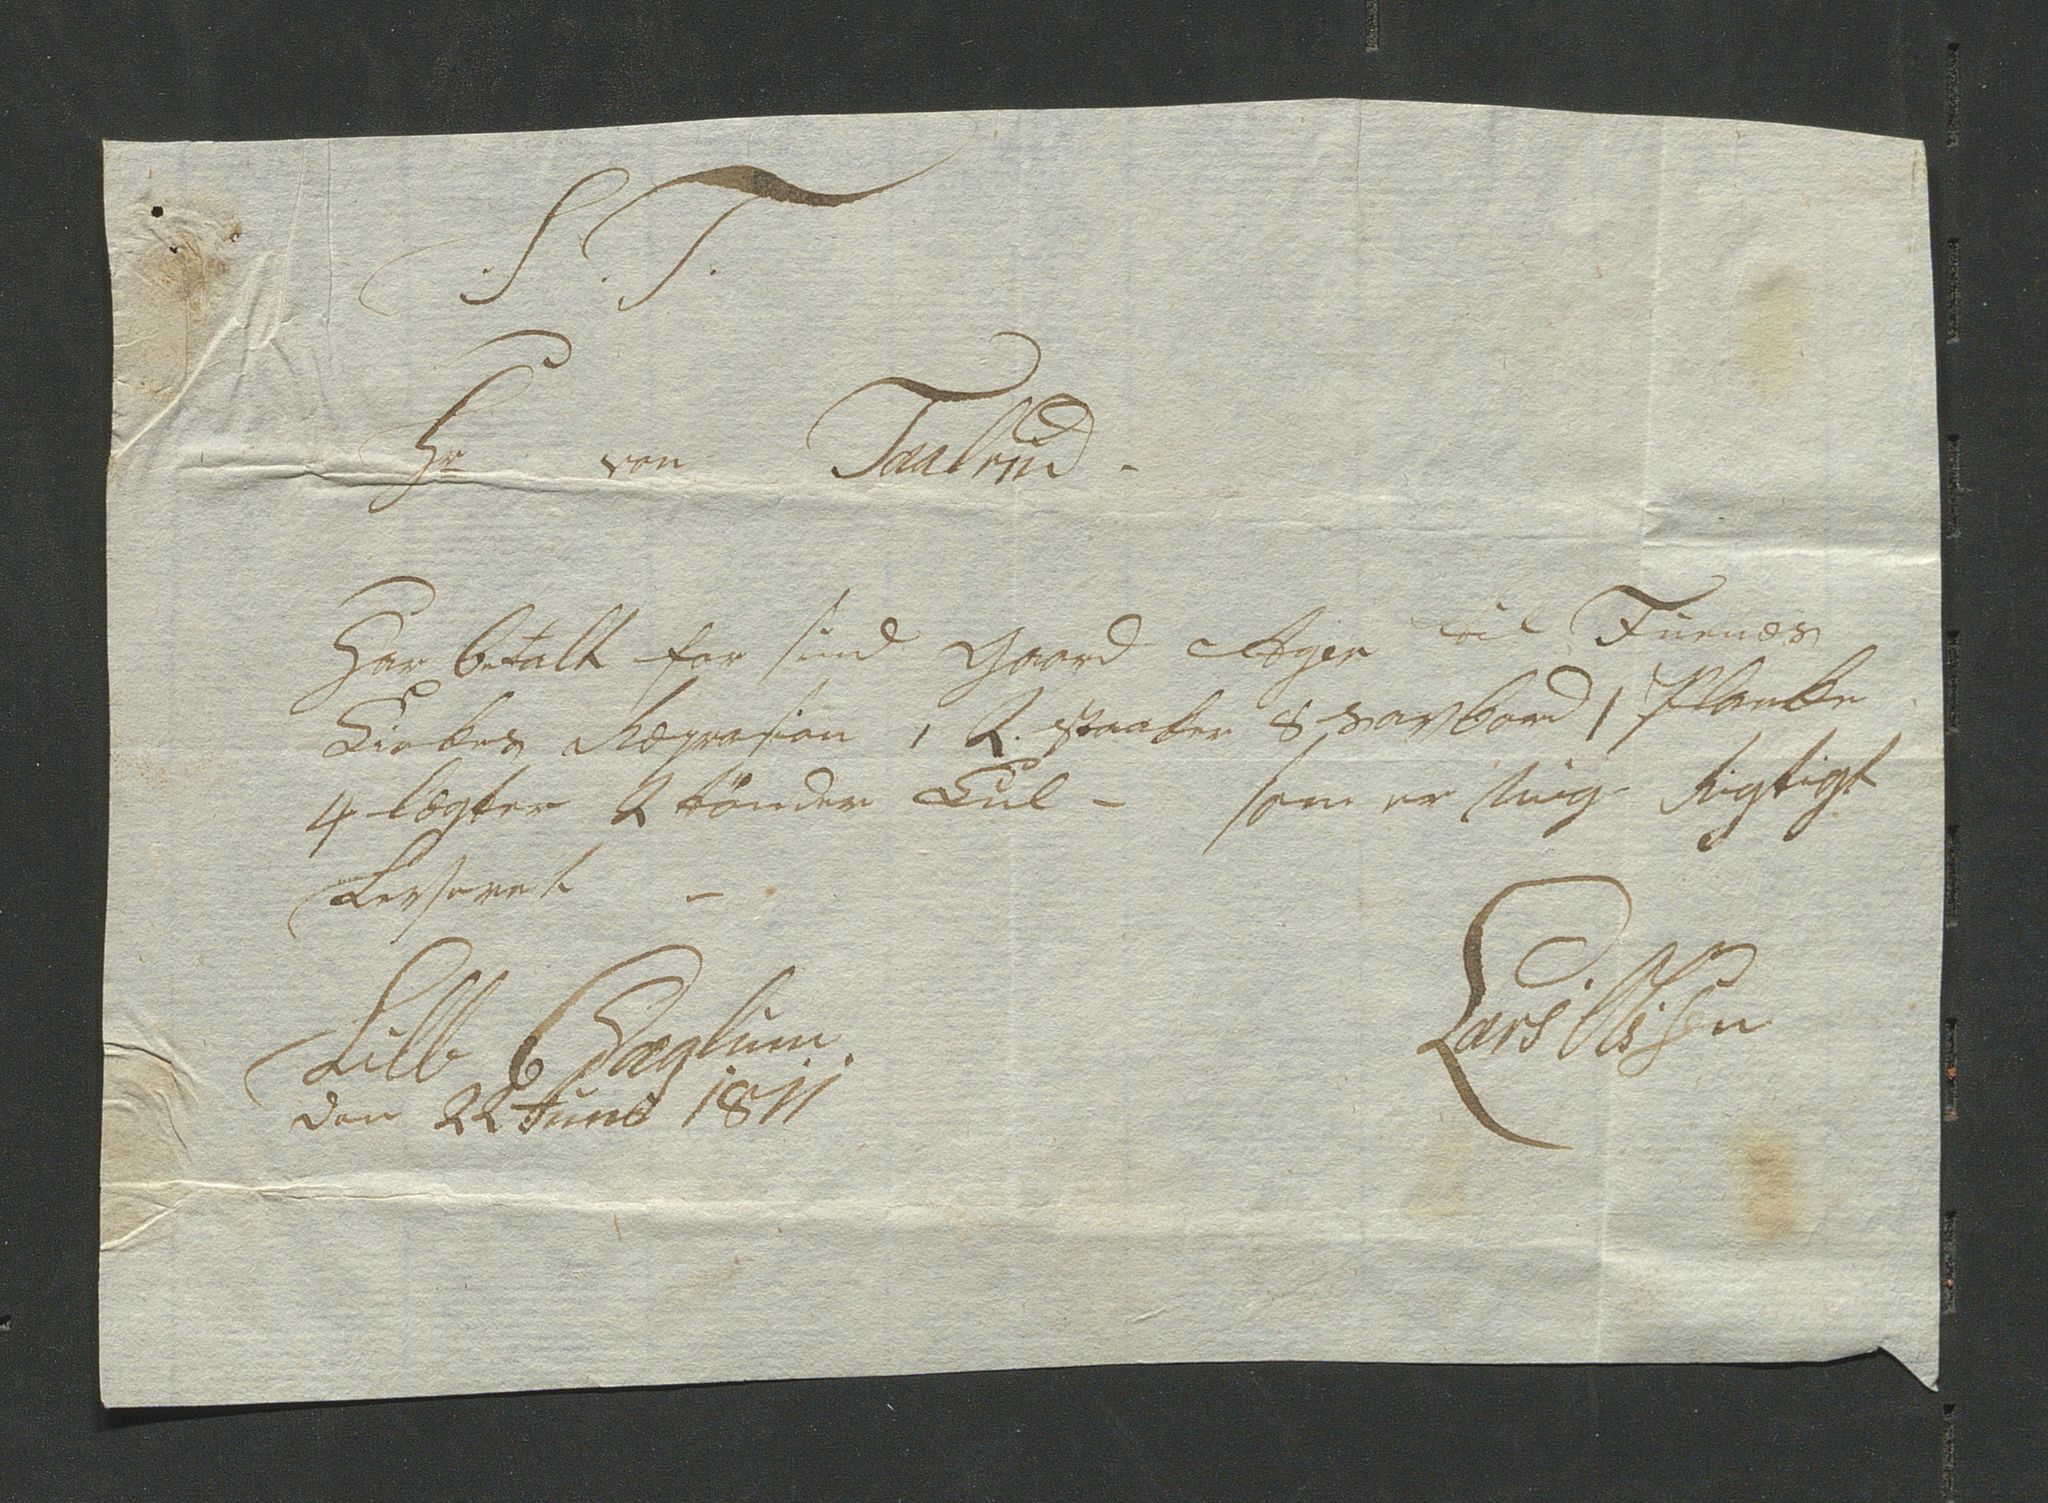 S. T.
Hr von Taalrud -
Har betalt for sind Gaard Ager til Fuenæs
Kirkes Repration, 2 staaker 8 Savbord 1 Planke
4 lægter 2 tønder Kul - som er mig Rigtigt
Leveret -
Lille Hæglum
den 22 Juni 1811
Lars Olsen